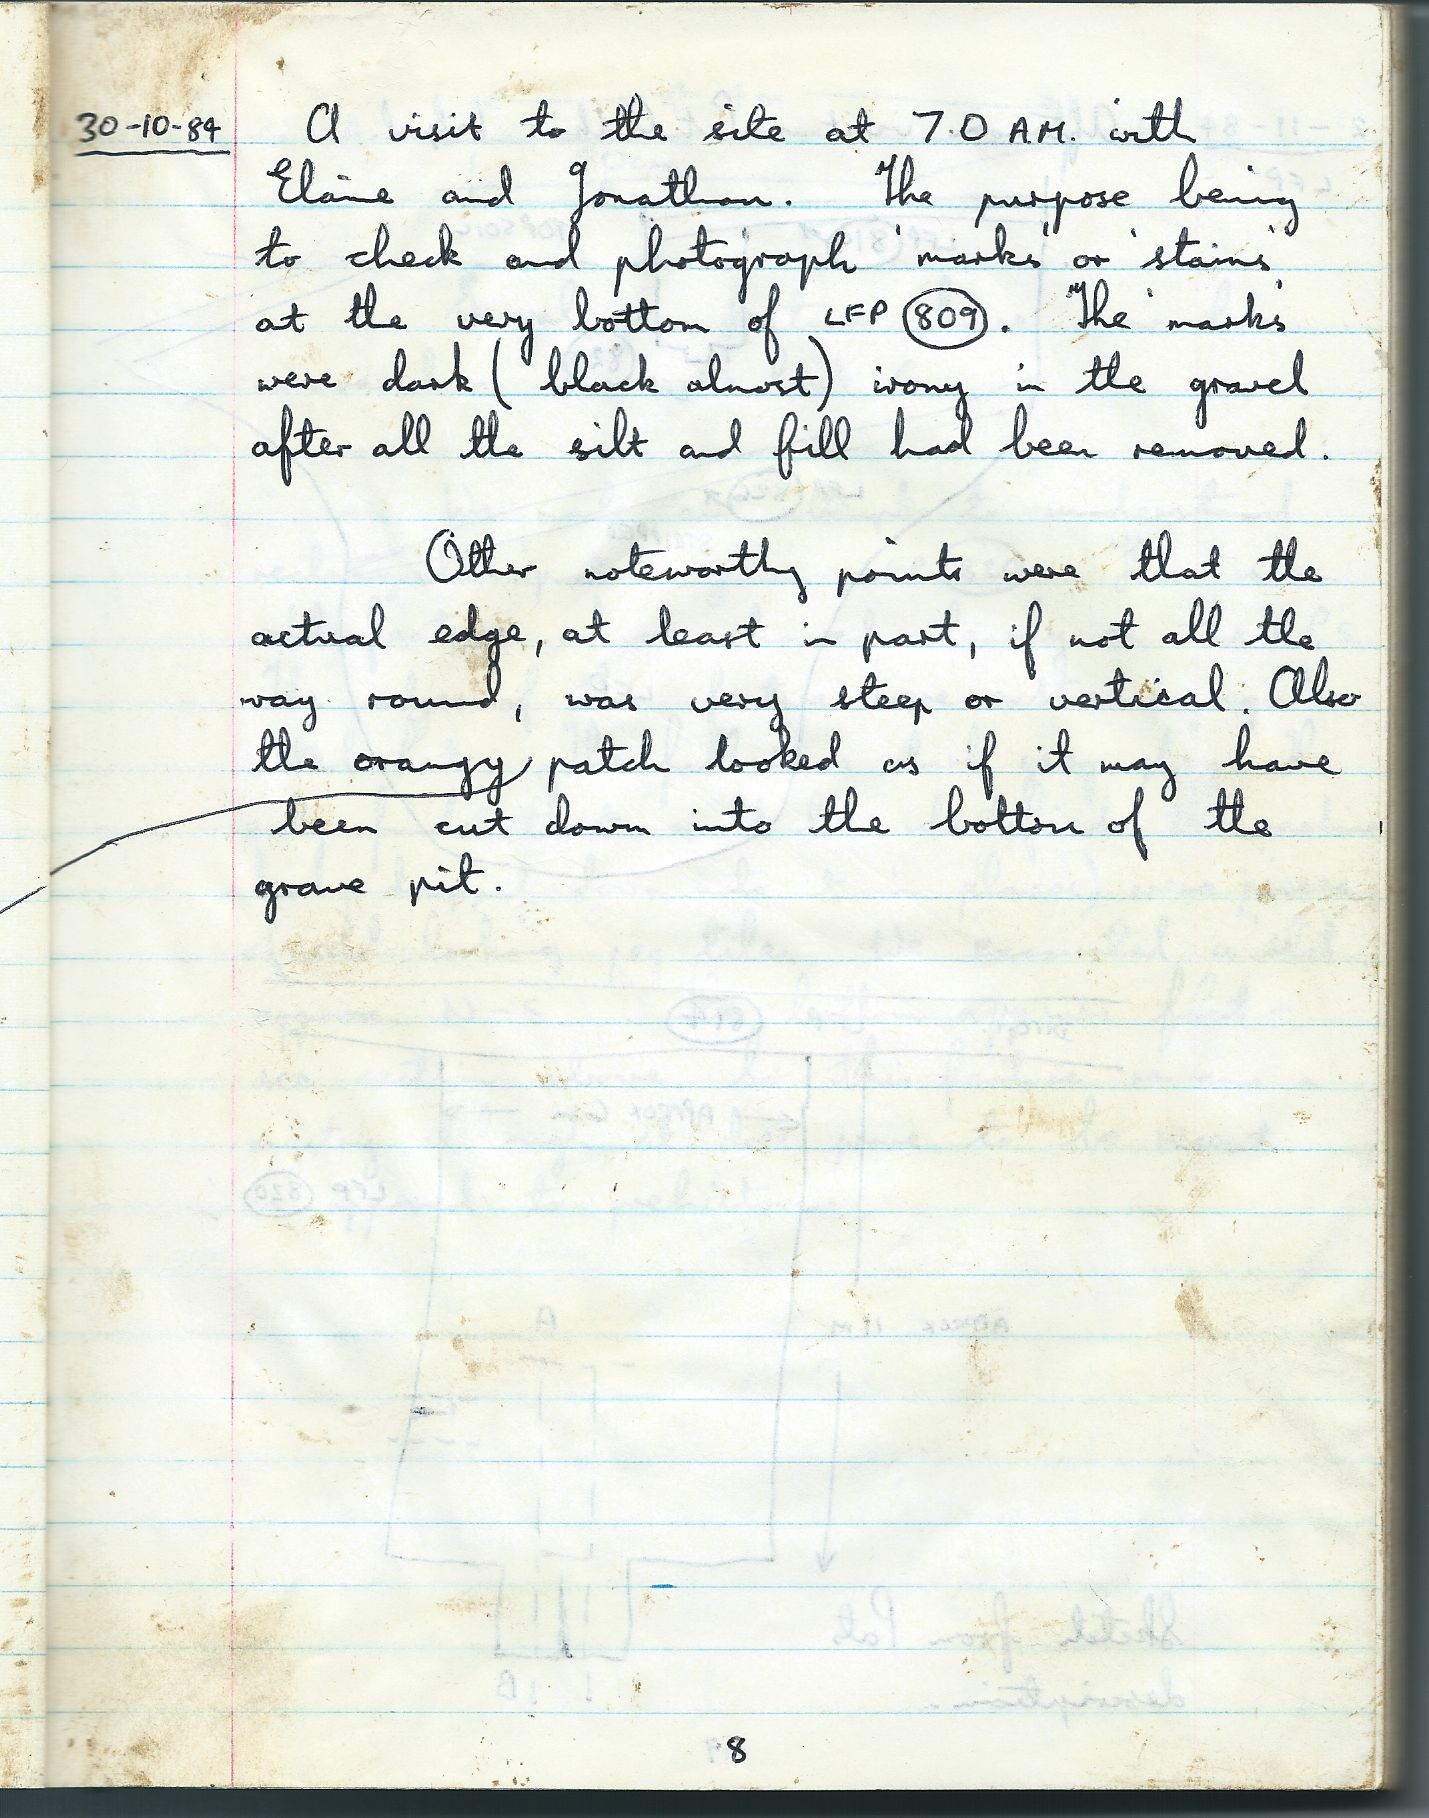 30-10-84 A visit to the site at 7.0 A.M. with
Elaine and Jonathan. The purpose being
to check and photograph 'marks' or 'stains'
at the very bottom of LFP (809). The 'marks'
were dark (black almost) irony in the gravel
after all the silt and fill had been removed.
Other noteworthy points were that the
actual edge, at least in part, if not all the
way round, was very steep or vertical. Also
the orangy patch looked as if it may have
been cut down into the bottom of the
grave pit.
8